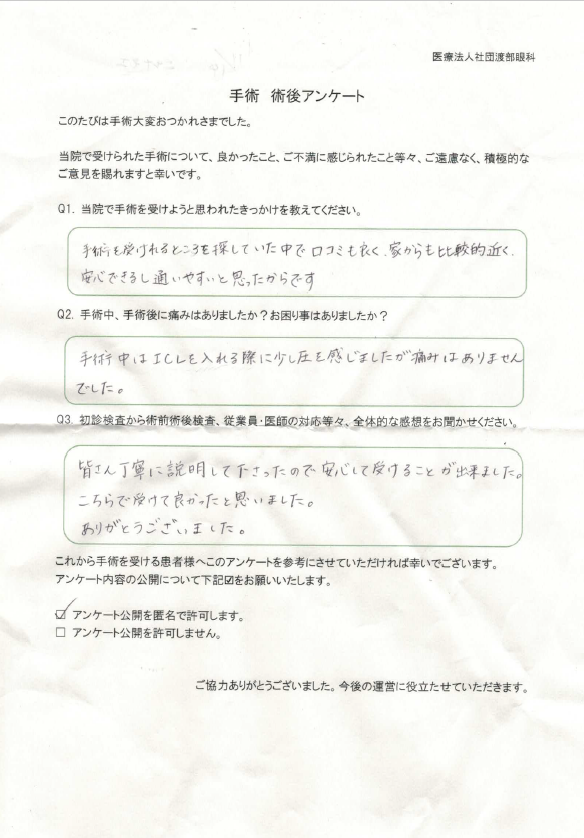 医療法人社団渡部眼科
手術　術後アンケート
このたびは手術大変おつかれさまでした。
当院で受けられた手術について、良かったこと、ご不満に感じられたこと等々、ご遠慮なく、積極的な
ご意見を賜れますと幸いです。
Q1. 当院で手術を受けようと思われたきっかけを教えてください。
手術を受けれるところを探していた中で口コミも良く、家からも比較的近く、
安心できるし通いやすいと思ったからです
Q2. 手術中、手術後に痛みはありましたか？お困り事はありましたか？
手術中はICLを入れる際に少し圧を感じましたが痛みはありません
でした。
Q3. 初診検査から術前術後検査、従業員・医師の対応等々、全体的な感想をお聞かせください。
皆さん丁寧に説明して下さったので安心して受けることが出来ました。
こちらで受けて良かったと思いました。
ありがとうございました。
これから手術を受ける患者様へこのアンケートを参考にさせていただければ幸いでございます。
アンケート内容の公開について下記☑をお願いいたします。
☑ アンケート公開を匿名で許可します。
□ アンケート公開を許可しません。
ご協力ありがとうございました。今後の運営に役立たせていただきます。